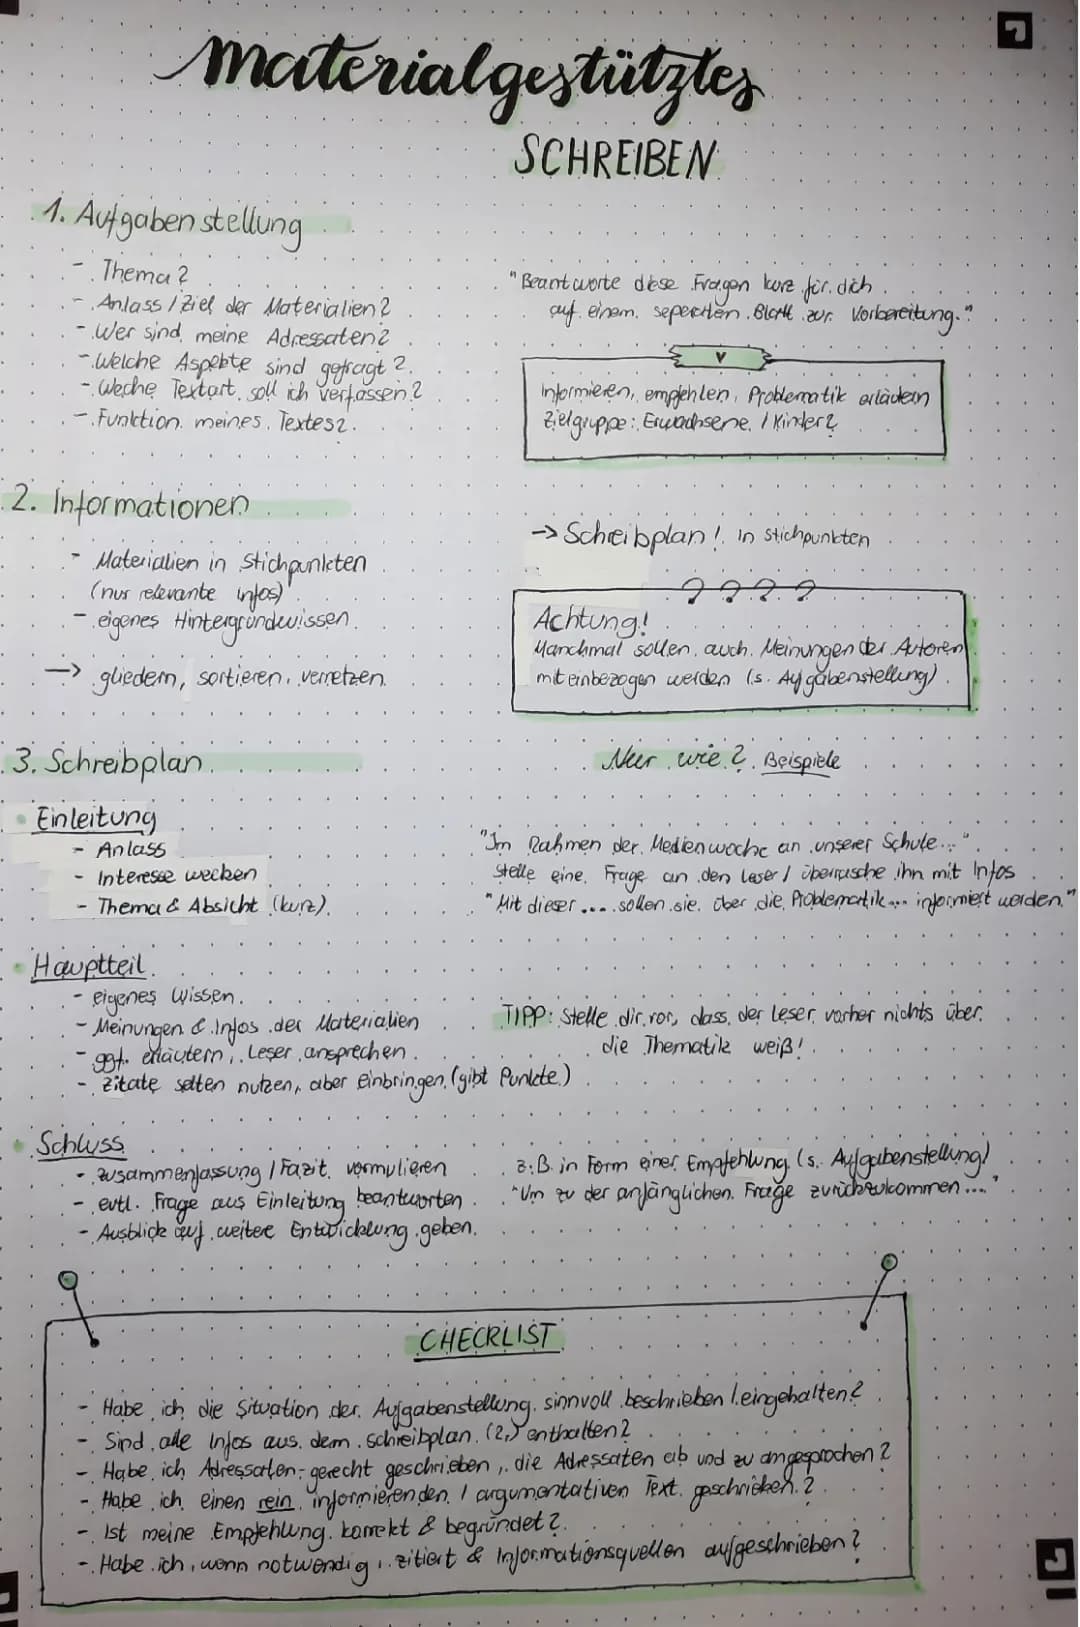 Materialgestütztes
SCHREIBEN
1. Aufgabenstellung
- Thema?
- Anlass / Ziel der Materialien?
- Wer sind meine Adressaten?
- Welche Aspekte sind gefragt?
- Weche Textart soll ich verfassen?
- Funktion meines Textes?
"Beantworte diese Fragen kurz für dich
auf einem seperaten Blatt zur Vorbereitung."
Informieren, empfehlen, Problematik erläutern
Zielgruppe: Erwachsene / Kinder?
2. Informationen
- Materialien in Stichpunkten
(nur relevante Infos)
- eigenes Hintergrundwissen
→ gliedern, sortieren, vernetzen
→ Schreibplan! in Stichpunkten
? ? ? ?
Achtung!
Manchmal sollen auch Meinungen der Autoren
mit einbezogen werden (s. Aufgabenstellung)
3. Schreibplan
Nur wie? Beispiele
• Einleitung
- Anlass
- Interesse wecken
- Thema & Absicht (kurz)
"Im Rahmen der Medienwoche an unserer Schule..."
Stelle eine Frage an den Leser / überrasche ihn mit Infos
"Mit dieser .... sollen sie über die Problematik... informiert werden."
• Hauptteil
- eigenes Wissen
- Meinungen & Infos der Materialien
- ggf. erläutern, Leser ansprechen
- Zitate selten nutzen, aber einbringen (gibt Punkte)
TIPP: Stelle dir vor, dass der Leser vorher nichts über
die Thematik weiß!
• Schluss
- Zusammenfassung / Fazit vormulieren
- evtl. Frage aus Einleitung beantworten
- Ausblick auf weitere Entwicklung geben
z.B. in Form einer Empfehlung (s. Aufgabenstellung)
"Um zu der anfänglichen Frage zurückzukommen ...."
CHECKLIST
- Habe ich die Situation der Aufgabenstellung sinnvoll beschrieben / eingehalten?
- Sind alle Infos aus dem Schreibplan (2.) enthalten?
- Habe ich Adressaten-gerecht geschrieben, die Adressaten ab und zu angesprochen?
- Habe ich einen rein informierenden / argumentativen Text geschrieben?
- Ist meine Empfehlung korrekt & begründet?
- Habe ich, wenn notwendig, zitiert & Informationsquellen aufgeschrieben?